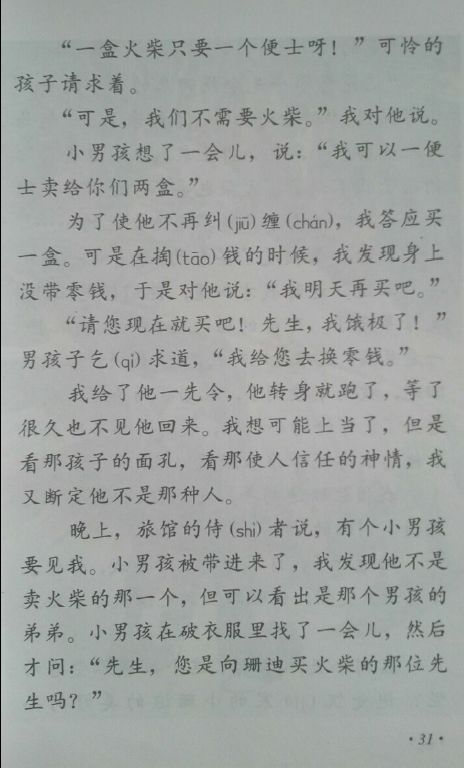 “一盒火柴只要一个便士呀！”可怜的
孩子请求着。
“可是，我们不需要火柴。”我对他说。
小男孩想了一会儿，说：“我可以一便
士卖给你们两盒。”
为了使他不再纠(jiū)缠(chán)，我答应买
一盒。可是在掏(tāo)钱的时候，我发现身上
没带零钱，于是对他说：“我明天再买吧。”
“请您现在就买吧！先生，我饿极了！”
男孩子乞(qǐ)求道，“我给您去换零钱。”
我给了他一先令，他转身就跑了，等了
很久也不见他回来。我想可能上当了，但是
看那孩子的面孔，看那使人信任的神情，我
又断定他不是那种人。
晚上，旅馆的侍(shì)者说，有个小男孩
要见我。小男孩被带进来了，我发现他不是
卖火柴的那一个，但可以看出是那个男孩的
弟弟。小男孩在破衣服里找了一会儿，然后
才问：“先生，您是向珊迪买火柴的那位先
生吗？”
·31·